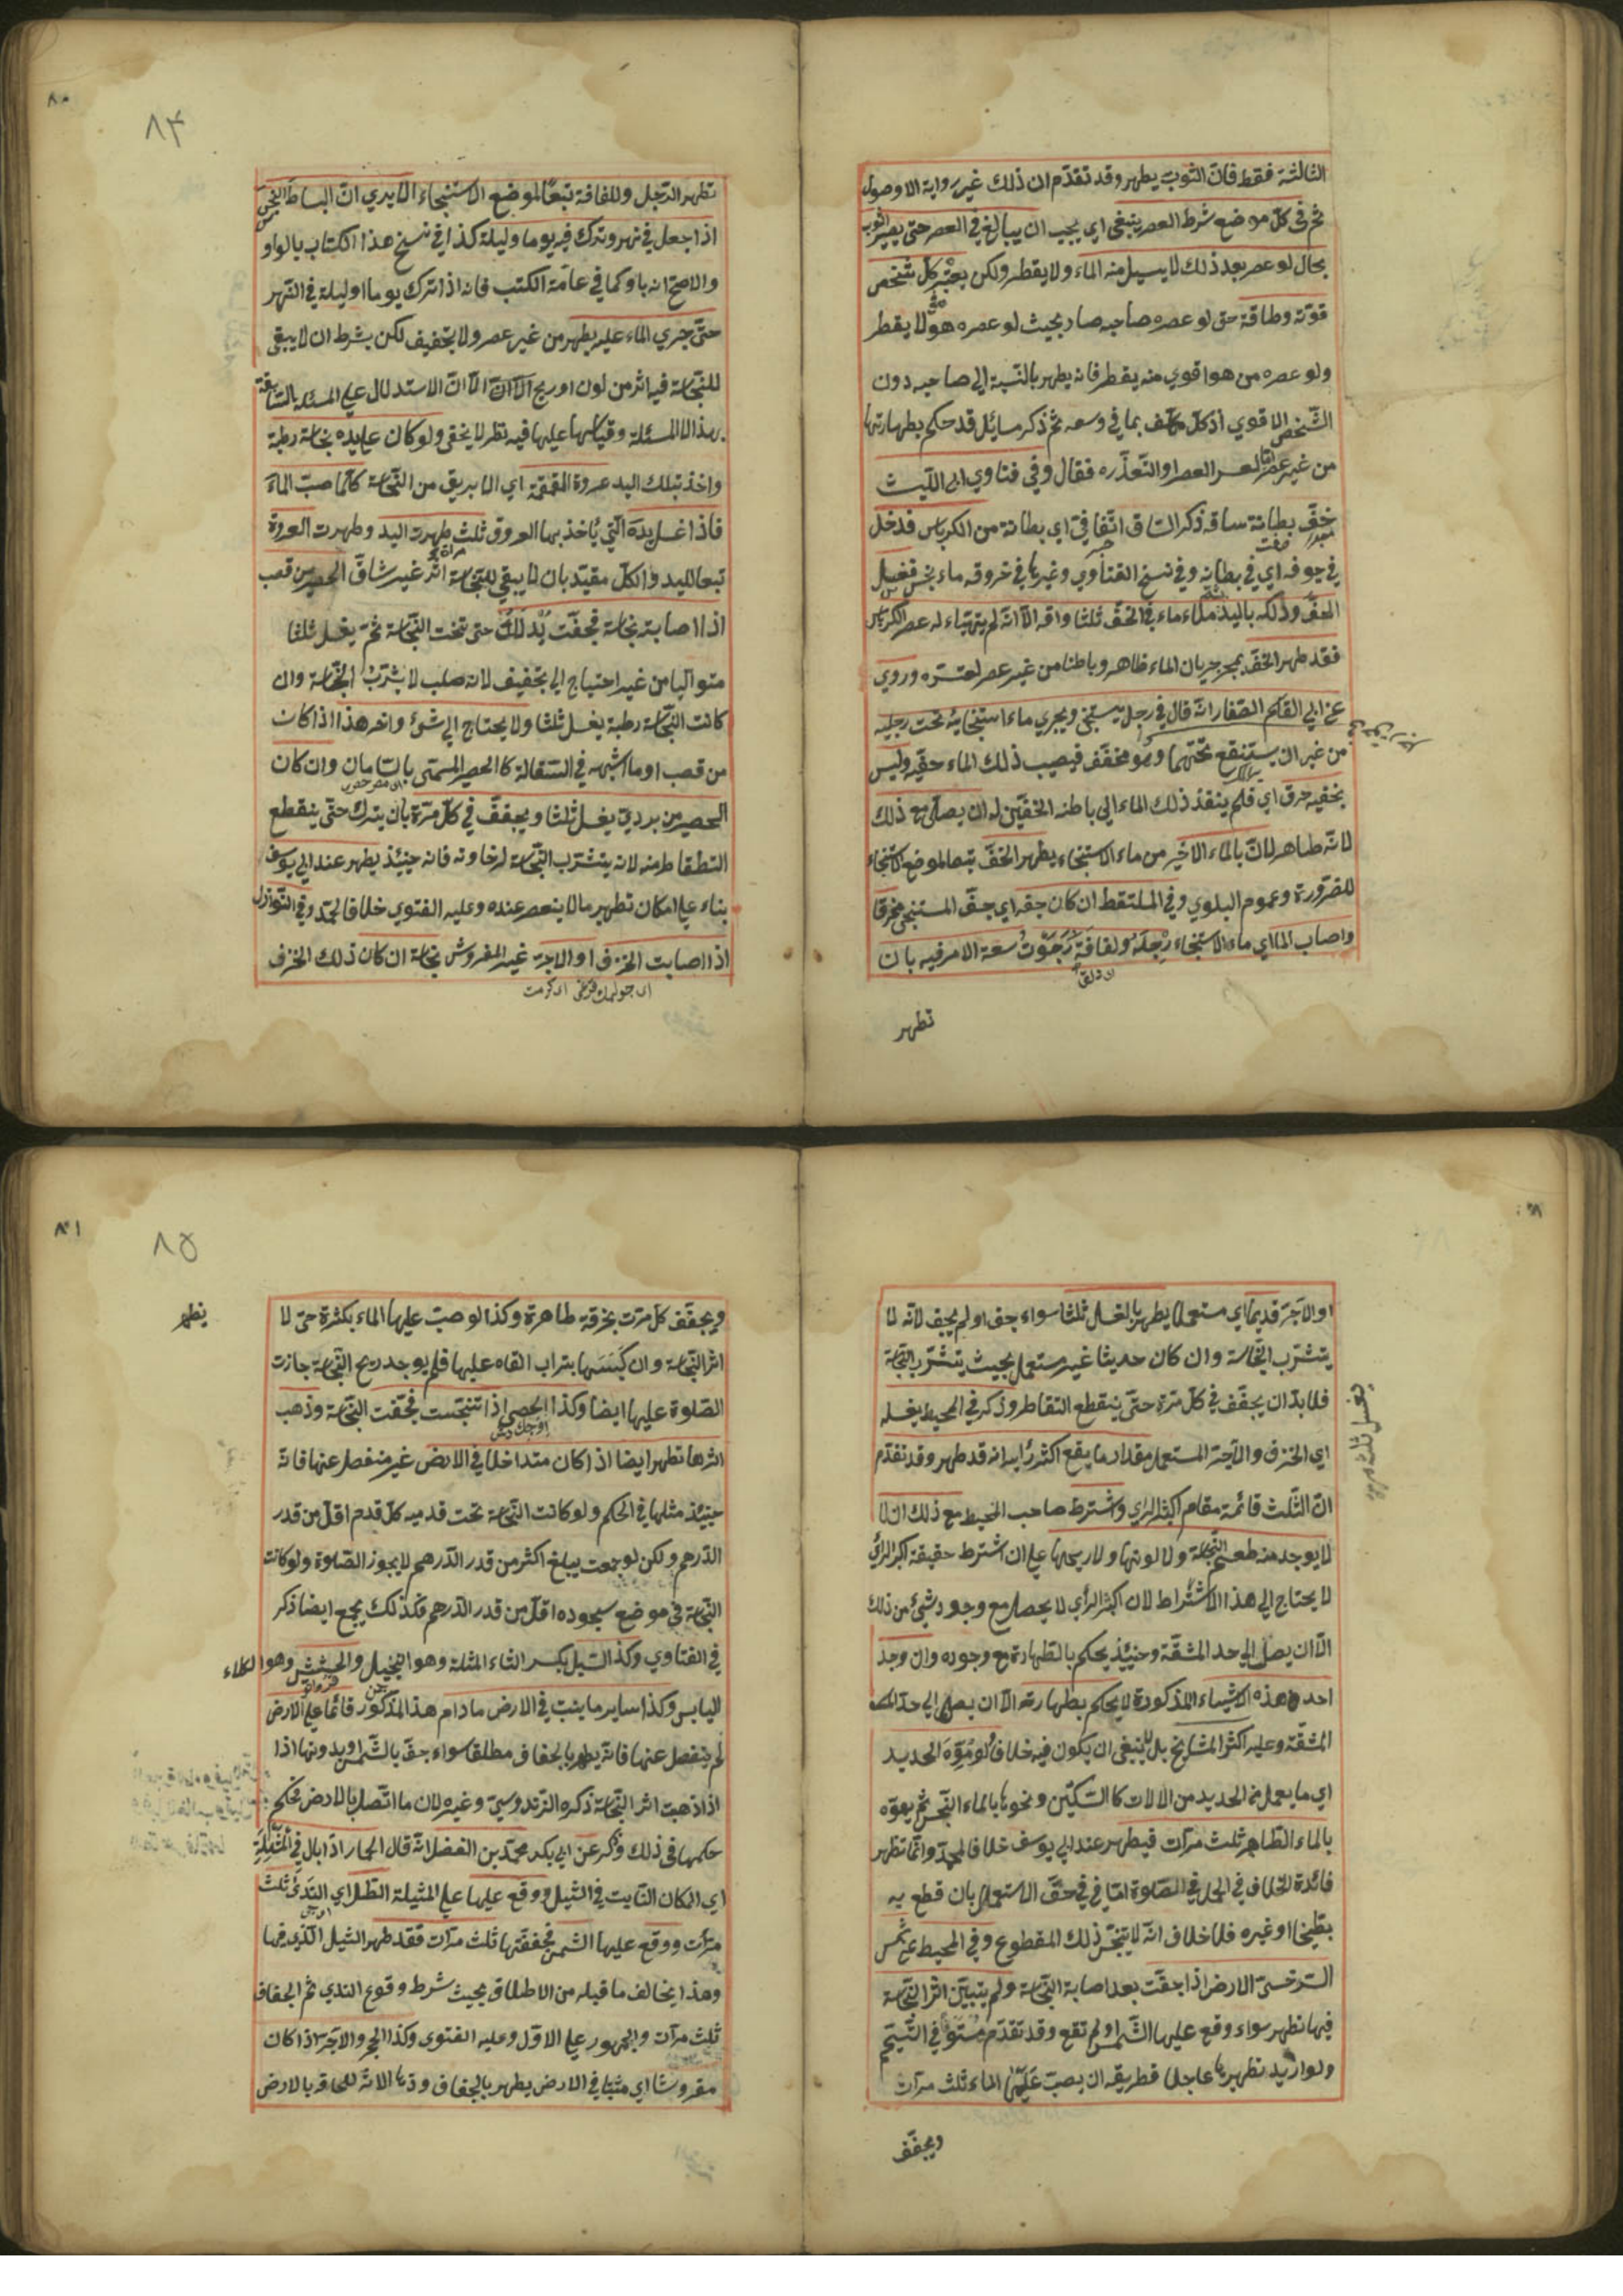 الثالثة فقط فان الثوب يطهر وقد تقدم ان ذلك غير رواية الاوصول
ثم فى كل موضع شرط العصر ينبغى اى يجب ان يبالغ فى العصر حتى يصير الثوب
بحال لو عصر بعد ذلك لا يسيل منه الماء ولا يقطر ولكن يعتبر كل شخص
قوته وطاقة حتى لو عصره صاحبه صار بحيث لو عصره هو لا يقطر
ولو عصره من هو اقوي منه يقطر فانه يطهر بالنسبة الي صاحبه دون
الشخص الاقوي اذ كل مكلف بما في وسعه ثم ذكر مسائل قد حكم بطهارتها
من غير عصر لعسر العصر او التعذره فقال وفي فتاوي ابى الليث
خف بطانة ساقه ذكر الساق اتفاقي اي بطانة من الكرباس فدخل
في جوفه اي في بطانه وفي نسخ الفتاوي وغيرها في خروقه ماء نجس فغسل
الخف ودلكه باليد ملاء ماء في الخف ثلثا واقه الا انه لم يتهياء له عصر الكرباس
فقد طهر الخف بمجر جريان الماء ظاهر وباطنا من غير عصر لعتره وروي
عن ابي القاسم الصفار انه قال في رجل يستنجى ويجري ماء استنجائه تحت رجليه
من غير ان يستنقع تحتهما وهو مخفف فيصيب ذلك الماء خفيه وليس
بخفيه خرق اي فلم ينفذ ذلك الماء الي باطنه الخفين له ان يصلى مع ذلك
لانه طاهر لان بالماء الاخير من ماء الاستنجاء يطهر الخف تبعا لموضع الاستنجاء
للضرورة وعموم البلوي وفي الملتقط ان كان خفه اي خف المستنجى مخرقا
واصاب الما اي ماء الاستنجاء رجله ولفافة رجوت سعة الامر فيه بان
تطهر
٨٠
٨٤
تطهر الرجل وللفافة تبعا لموضع الاستنجاء الا يري ان البساط النجس
اذا جعل في نهر وترك فيه يوما وليلة كذا في نسخ هذا الكتاب بالواو
والاصح انه باو كما في عامة الكتب فانه اذا ترك يوما او ليلة في النهر
حتى جري الماء عليه يطهر من غير عصر ولا تجفيف لكن بشرط ان لا يبقى
للنجاسة فيه اثر من لون او ريح الا ان الاستدلال علي المسئلة السابقة
بهذا المسئلة وقياسها عليها فيه نظر لا يخفى ولو كان علي يده نجاسة رطبة
واخذ بتلك اليد عروة القمقمة اي الابريق من النجاسة كلما صب الماء
فاذا غسل يده التي ياخذ بها العروق ثلث طهرت اليد وطهرت العروة
تبعا لليد والكل مقيد بان لا يبقي للنجاسة اثر غير شاق الحصير من قصب
اذا اصابته نجاسة فجفت يدلك حتى تخت النجاسة ثم يغسل ثلثا
متواليا من غير احتياج الي تجفيف لانه صلب لا يشرب النجاسة وان
كانت النجاسة رطبة يغسل ثلثا ولا يحتاج الي شئ واخر هذا اذا كان
من قصب او ما اشبهه في السفالة كا الحصير المسمى بالسامان وان كان
الحصير من بردي يغسل ثلثا ويجفف في كل مرة بان يترك حتى ينقطع
التطقاطر منه لانه يتشرب النجاسة لرخاوته فانه حينئذ يطهر عند ابي يوسف
بناء علي امكان تطهير ما لا ينعصر عنده وعليه الفتوي خلافا لمحمد وفي النوازل
اذا اصابت الخزف او الاجر غير المفروش نجاسة ان كان ذلك الخزف
او الآجر قديما اي مستعملا يطهر بالغسل ثلثا سواء جف او لم يجف لانه لا
يتشرب النجاسة وان كان حديثا غير مستعمل بحيث يتشرب النجاسة
فلا بد ان يجفف في كل مرة حتى ينقطع التقاطر وذكر في المحيط يغسله
اي الخزف والآجر المستعمل مقدار ما يقع اكثر رايه انه قد طهر وقد تقدم
ان الثلث قائمة مقام اكثر الراي واشترط صاحب المحيط مع ذلك ان لا
لا يوجد منه طعم النجاسة ولا لونها ولا ريحها علي ان اشترط حقيقة اكبر الرائ
لا يحتاج الي هذا الاشتراط لان اكثر الرأي لا يحصل مع وجود شئ من ذلك
الا ان يصل الي حد المشقة وحينئذ يحكم بالطهارة مع وجوده وان وجد
احد هذه الاشياء المذكورة لا يحكم بطهارته الا ان يصل الي حد
المشقة وعليه اكثر المشايخ بل لا ينبغى ان يكون فيه خلاف ولو موه الحديد
اي ما يعمل من الحديد من الالات كا السكين ونحوها بالماء النجس ثم يموه
بالماء الطاهر ثلث مرات فيطهر عند ابي يوسف خلافا لمحمد وانما تظهر
فائدة الخلاف في الحمل في الصلوة اما في في حق الاستعمال بان قطع به
بطيخا او غيره فلا خلاف انه لا يتنجس ذلك المقطوع وفي المحيط عن شمس
السرخسي الارض اذا جفت بعد اصابة النجاسة ولم يتبين اثر النجاسة
فيها تطهر سواء وقع عليها الشمس او لم تقع وقد تقدم مستوفي في التيمم
ولو اريد تطهيرها عاجلا فطريقه ان يصب عليها الماء ثلث مرات
ويجفف
يغسل ثلث مرة
٨١
٨٥
ويجفف كل مرت بخرقة طاهرة وكذا لو صب عليها الماء بكثرة حتى لا
يظهر
اثر النجاسة وان كبسها بتراب القاه عليها فلم يوجد ريح النجاسة جازت
الصلوة عليها ايضا وكذا الحصى اذا تنجست فجفت النجاسة وذهب
اثرها تطهر ايضا اذا كان متداخلا في الارض غير منفصل عنها فانه
حينئذ مثلها في الحكم ولو كانت النجاسة تحت قدميه كل قدم اقل من قدر
الدرهم ولكن لو جمعت يبلغ اكثر من قدر الدرهم لا يجوز الصلوة ولو كانت
النجاسة في موضع سجوده اقل من قدر الدرهم فكذلك يجمع ايضا ذكر
في الفتاوي وكذا الثيل بكسر الثاء المثلثة وهو النجيل والحشيش وهو الكلاء
اليابس وكذا ساير ما ينبت في الارض مادام هذا المذكور قائما علي الارض
لم ينفصل عنها فانه يطهر بالجفاف مطلقا سواء جف بالشمس او بدونها اذا
اذا ذهبت اثر النجاسة ذكره الزندوسي وغيره لان ما اتصل بالارض فحكمه
حكمها فى ذلك وذكر عن ابي بكر محمد بن الفضل انه قال الحمار اذا بال في المثيلة
اي المكان النايت في الثيل ووقع عليها علي المثيلة الظل اي الندي ثلث
مرات ووقع عليها الشمس فجففتها ثلث مرات فقد طهر الثيل الذي فيها
وهذا يخالف ما قبله من الاطلاق بحيث شرط وقوع الندي ثم الجفاف
ثلث مرات والجمهور علي الاول وعليه الفتوى وكذا الحجر والآجر اذا كان
مفروشا اي مثبتا في الارض يطهر بالجفاف وذهابها لانه للحاقه بالارض